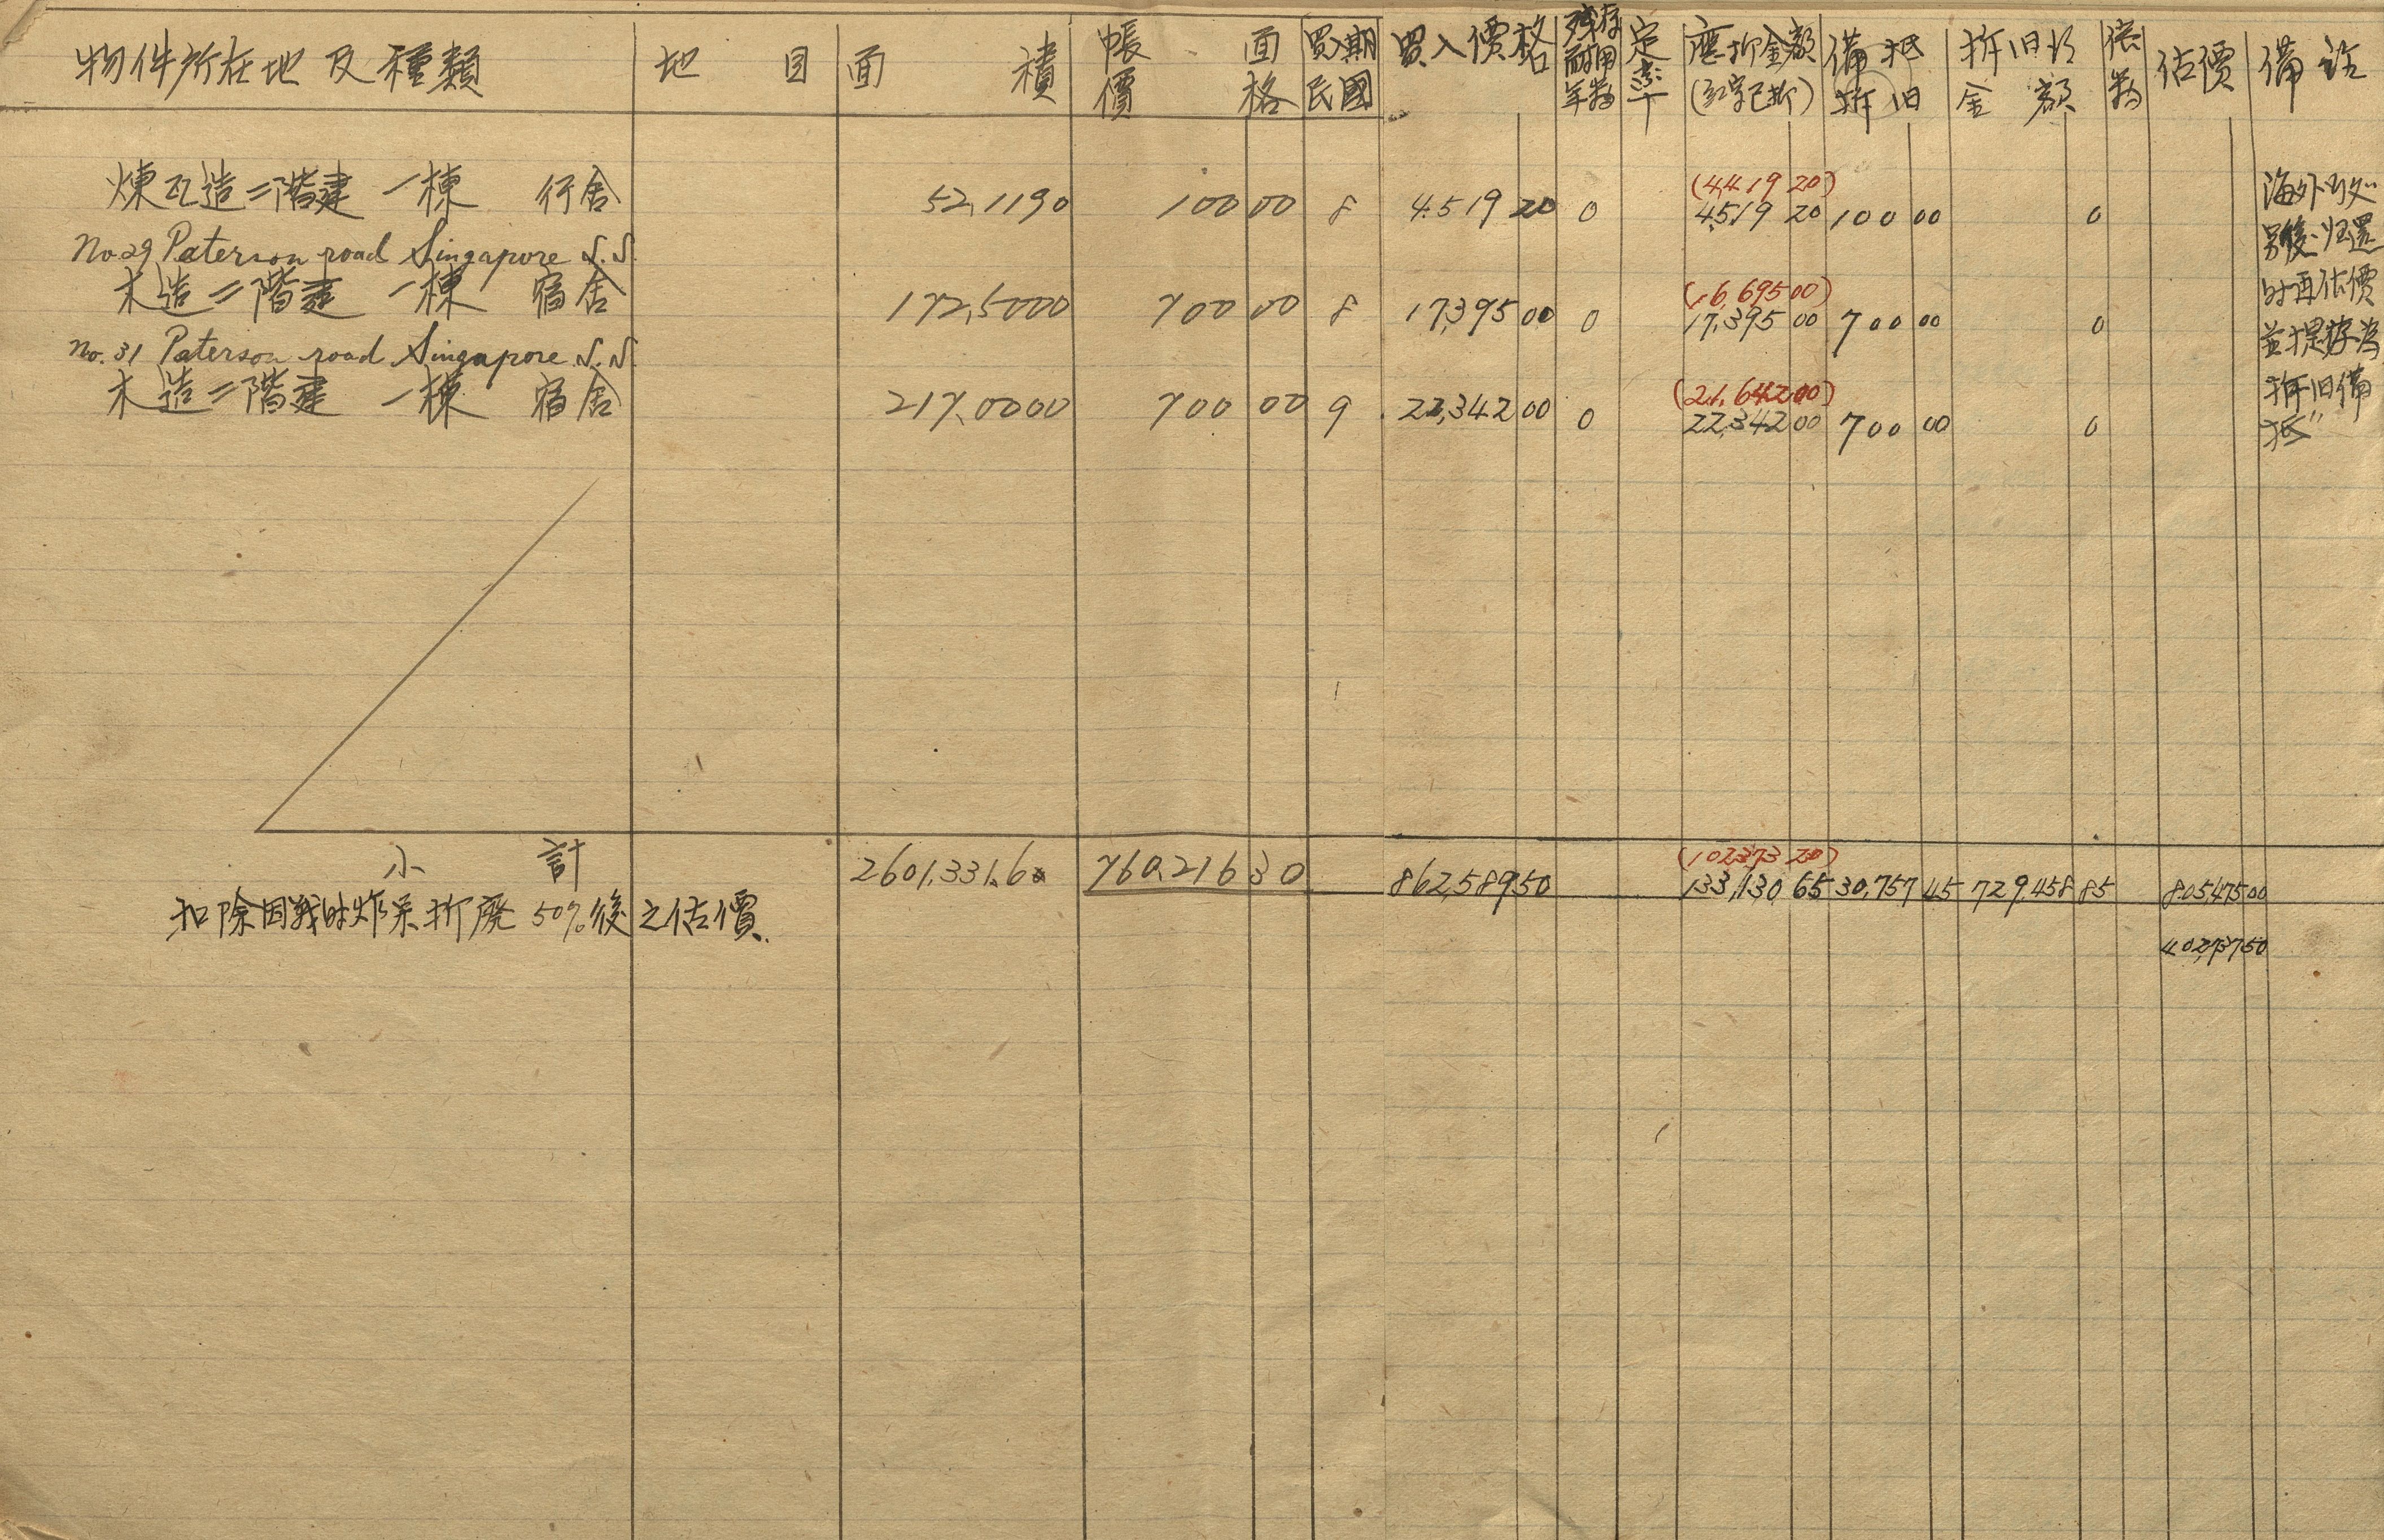 物件所在地及種類 地目 面積 帳面價格 買入期民國 買入價格 殘存耐用年數 定率 應折金額(紅字已折) 備抵折旧 折旧後金額 倍數 估價 備註
煉瓦造二階建 一棟 行舍 52,1190 100 00 8 4,519 20 0 (4,419 20) 4,519 20 100 00 0
No 29 Paterson road Singapore S.S.
木造二階建 一棟 宿舍 172,5000 700 00 8 17,395 00 0 (16,695 00) 17,395 00 700 00 0
No. 31 Paterson road Singapore S.S.
木造二階建 一棟 宿舍 217,0000 700 00 9 22,342 00 0 (21,642 00) 22,342 00 700 00 0
海外
归還
時再估價
並提存為
折旧備
抵"
小計 2601,331.6 760,216 30 862,589 50 (102,373 20) 133,130 65 30,757 45 729,458 85 805,475 00
扣除因戰時炸 折廢 50% 後之估價 402,737 50